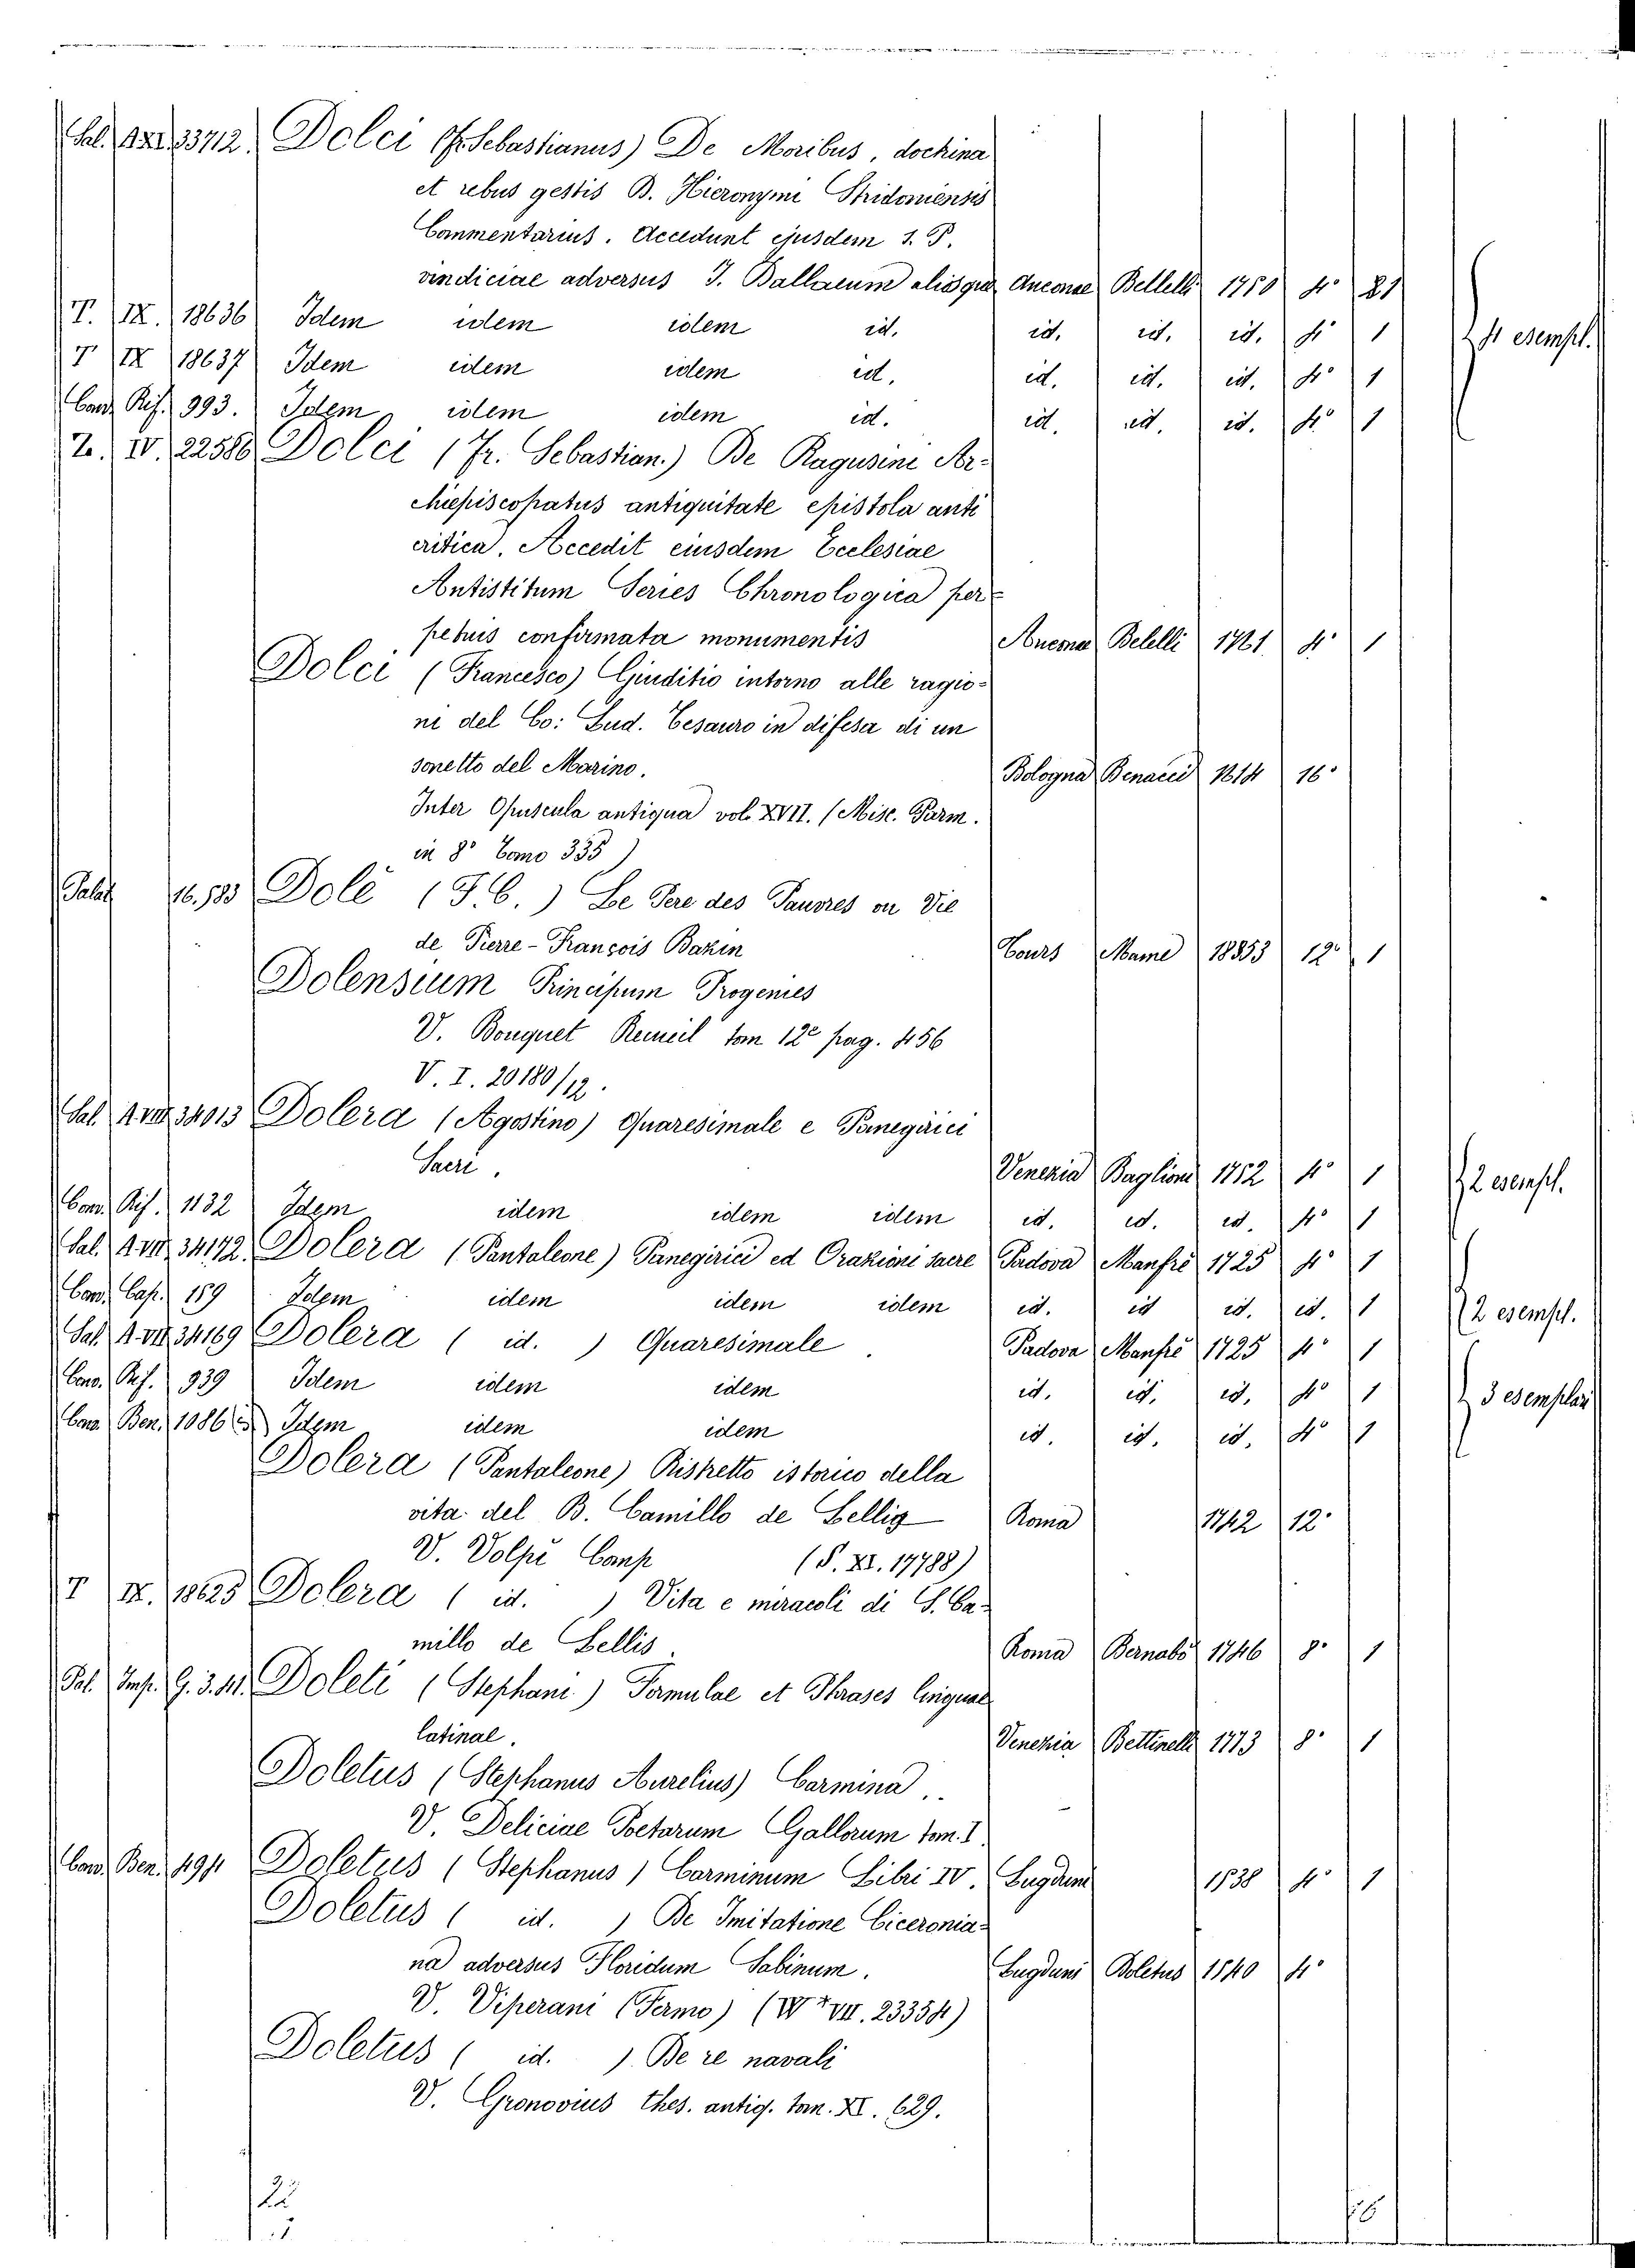 Sal. AXI. 33712. Dolci (F. Sebastianus) De Moribus, doctrina
et rebus gestis B. Hieronymi Stridoniensis
Commentarius. Accedunt ejusdem S. P.
vindiciae adversus J. Ballaeum aliosque Anconae Bellelli 1750 4° 1
T. IX. 18636 Idem idem idem id. id. id. id. 4° 1 4 esempl.
T IX 18637 Idem idem idem id. id. id. id. 4° 1
Conv. Rif. 993. Idem idem idem id. id. id. id. 4° 1
Z. IV. 22586 Dolci (Fr. Sebastian.) De Ragusini Ar-
chiepiscopatus antiquitate epistola anti
critica. Accedit eiusdem Ecclesiae
Antistitum Series Chronologica per-
petuis confirmata monumentis Ancona Belelli 1761. 4° 1
Dolci (Francesco) Giuditio intorno alle ragio-
ni del Co: Lud. Tesauro in difesa di un
sonetto del Marino. Bologna Benacci 1614 16°
Inter Opuscula antiqua vol. XVII. (Misc. Parm.
in 8° Tomo 335)
Palat 16,583 Dolé (F. C.) Le Pere des Pauvres ou Vie
de Pierre-François Bazin Tours Mame 1853 12° 1
Dolensium Principum Progenies
V. Bouquet Recueil tom 12° pag. 456
V. I. 20180/12.
Sal. A.VIII. 34013 Dolera (Agostino) Quaresimale e Panegirici
Sacri. Venezia Baglioni 1752 4° 1 2 esempl.
Conv. Rif. 1132 Idem idem idem idem id. id. id. 4° 1
Sal. A.VII. 34172. Dolera (Pantaleone) Panegirici ed Orazioni sacre Padova Manfrè 1725 4° 1
Conv. Cap. 159 Idem idem idem idem id. id id. id. 1 2 esempl.
Sal. A.VII. 34169 Dolera ( id. ) Quaresimale. Padova Manfrè 1725 4° 1
Conv. Rif. 939 Idem idem idem id. id. id. 4° 1 3 esemplari
Conv. Ben. 1086 Idem idem idem id. id. id. 4° 1
Dolera (Pantaleone) Ristretto istorico della
vita del B. Camillo de Lellis Roma 1742 12°
V. Volpi Camp (S. XI. 17788)
T IX. 18625 Dolera ( id. ) Vita e miracoli di S. Ca-
millo de Lellis. Roma Bernabò 1746 8° 1
Pal. Imp. G. 3. 41. Doleti (Stephani) Formulae et Phrases linguae
latinae. Venezia Bettinelli 1773 8° 1
Doletus (Stephanus Aurelius) Carmina..
V. Deliciae Poetarum Gallorum tom. I.
Conv. Ben. 494 Doletus (Stephanus) Carminum Libri IV. Lugduni 1538 4° 1
Doletus ( id. ) De Imitatione Ciceronia-
na adversus Floridum Sabinum. Lugduni Doletus 1540 4°
V. Viperani (Fermo) (W* VII. 23354)
Doletus ( id. ) De re navali
V. Gronovius thes. antiq. tom. XI. 629.